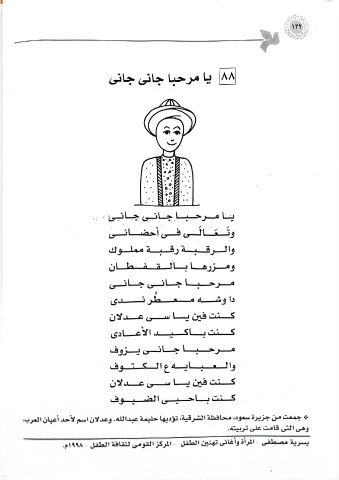 ١٣٩
٨٨ يا مرحبا جانى جانى
يا مرحبا جانى جانى
وتعالى فى أحضانى
والرقبة رقبة مملوك
ومزرها بالقفطان
مرحبا جانى جانى
دا وشه معطر ندى
كنت فين يا سى عدلان
كنت باكيد الأعادى
مرحبا جانى يزوف
والعبايه ع الكتوف
كنت فين يا سى عدلان
كنت باحيى الضيوف
* جمعت من جزيرة سعود، محافظة الشرقية، تؤديها حليمة عبدالله. وعدلان اسم لأحد أعيان العرب، وهى التى قامت على تربيته.
يسرية مصطفى - المرأة وأغانى تهنين الطفل - المركز القومى لثقافة الطفل - ١٩٩٨م.